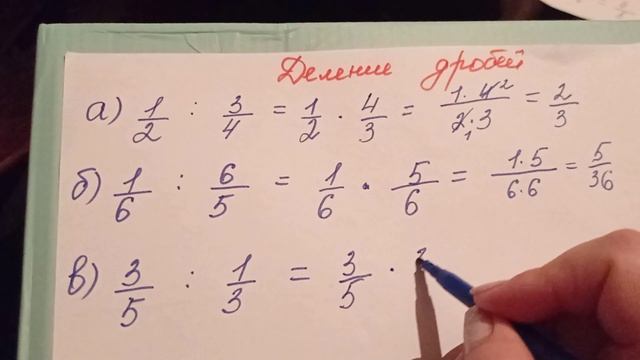 Деление дробей
а) 1/2 : 3/4 = 1/2 · 4/3 = 1·4²/2₁·3 = 2/3
б) 1/6 : 6/5 = 1/6 · 5/6 = 1·5/6·6 = 5/36
в) 3/5 : 1/3 = 3/5 ·